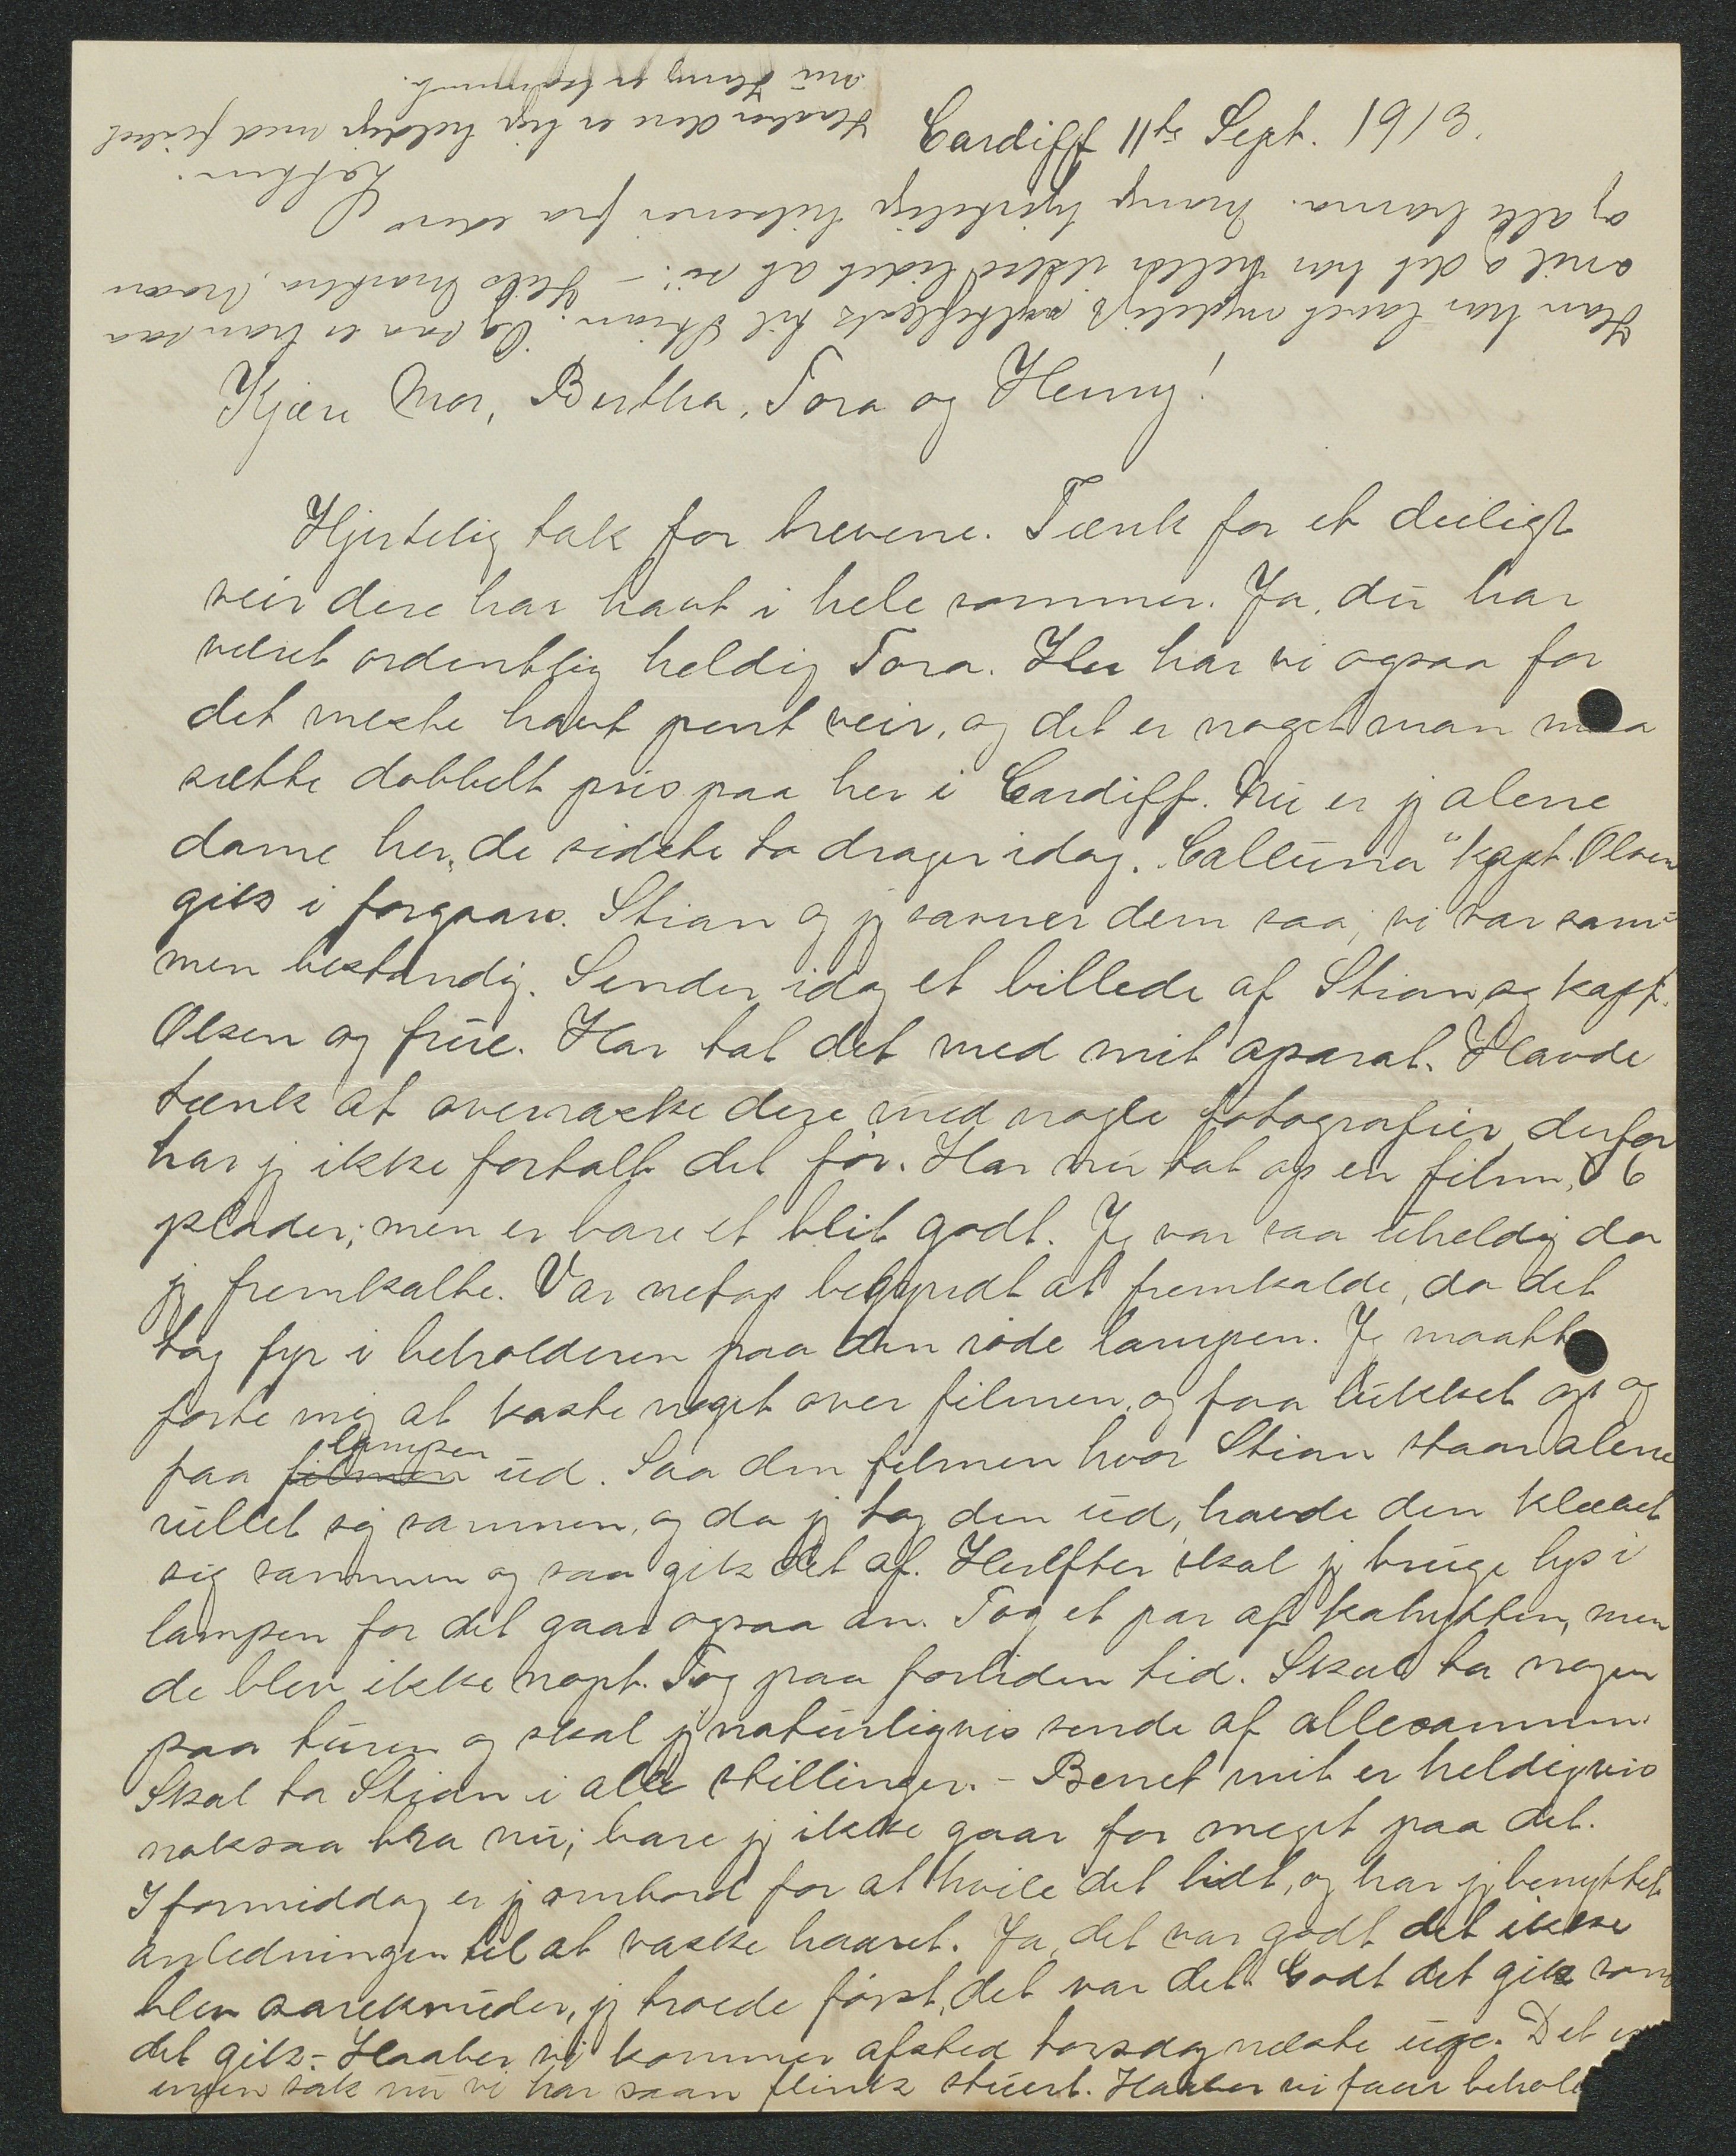 Cardiff 11te Sept. 1913.
Kjære Mor, Bertha, Tora og Henny!
Hjertelig tak for brevene. Tænk for et deiligt
veir dere har havt i hele sommer. Ja, du har
været ordentlig heldig Tora. Her har vi ogsaa for
det meste havt pent veir, og det er noget man maa
sætte dobbelt pris paa her i Cardiff. Nu er jg alene
dame her, de sidste to drager idag. "Calluna" kapt. Olsen
gik i forgaars. Stian og jg savner dem saa, vi var sam-
men bestandig. Sender idag et billede af Stian og kapt.
Olsen og frue. Har tat det med mit aparat. Havde
tænk at overraske dere med nogle fotografier, derfor
har jg ikke fortalt det før. Har nu tat op en film, 6
plader; men er bare et blit godt. Jg var saa uheldig da
jg fremkalte. Var netop begyndt at fremkalde, da det
tog fyr i beholderen paa den røde lampen. Jg maatte
forte mig at kaste noget over filmen, og faa lukket op og
faa filmen lampen ud. Saa den filmen hvor Stian staar alene
rullet sig sammen, og da jg tog den ud, havde den klæbet
sig sammen og saa gik det af. Herefter skal jg bruge lys i
lampen for det gaar ogsaa an. Tog et par af kahytten, men
de blev ikke nogt. Tog paa forliden tid. Skal ta nogen
paa turen og skal jg naturligvis sende af allesammen.
Skal ta Stian i alle stillinger. - Benet mit er heldigvis
noksaa bra nu; bare jg ikke gaar for meget paa det.
I formiddag er jg ombord for at hvile det lidt, og har jg benyttet
anledningen til at vaske haaret. Ja, det var godt det ikke
blev aareknuder, jg troede først, det var det. Godt det gik som
det gik. - Haaber vi kommer afsted torsdag næste uge. Det er
ingen sak nu vi har saan flink stuert. Haaber vi faar behol
Han har lavet nydelige til Stian. Og saa er han saa
snil og det har heller idet at si. - Hils Martha, Maren
og alle hjemme. Mange hjertelige hilsener fra eders
Haaber dere er lige heldige med
nu Henny er